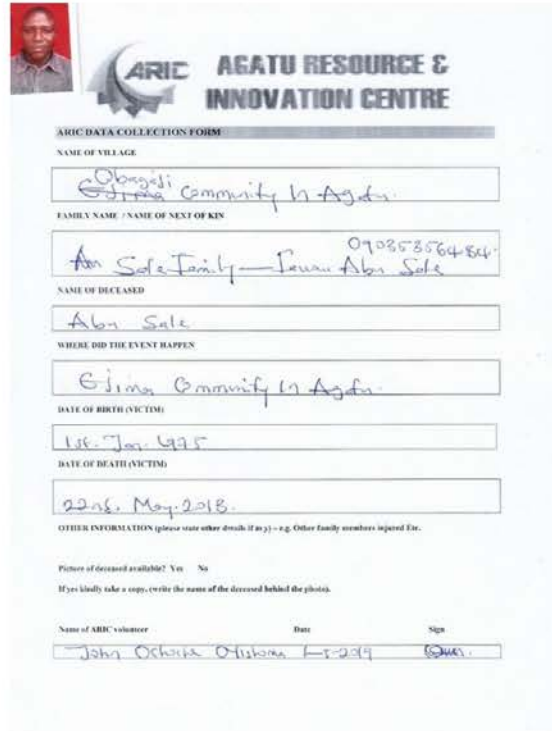 ARIC
AGATU RESOURCE &
INNOVATION CENTRE
ARIC DATA COLLECTION FORM
NAME OF VILLAGE
Obagaji
Ejima Community In Agatu.
FAMILY NAME / NAME OF NEXT OF KIN
Sale Family — Abu Sale
NAME OF DECEASED
Abu Sale
WHERE DID THE EVENT HAPPEN
Ejima Community In Agatu.
DATE OF BIRTH (VICTIM)
1st. Jan. 1975
DATE OF DEATH (VICTIM)
22nd. May. 2018.
OTHER INFORMATION (please state other details if any) – e.g. Other family members injured Etc.
Picture of deceased available? Yes No
If yes kindly take a copy. (write the name of the deceased behind the photo).
Name of ARIC volunteer Date Sign
John